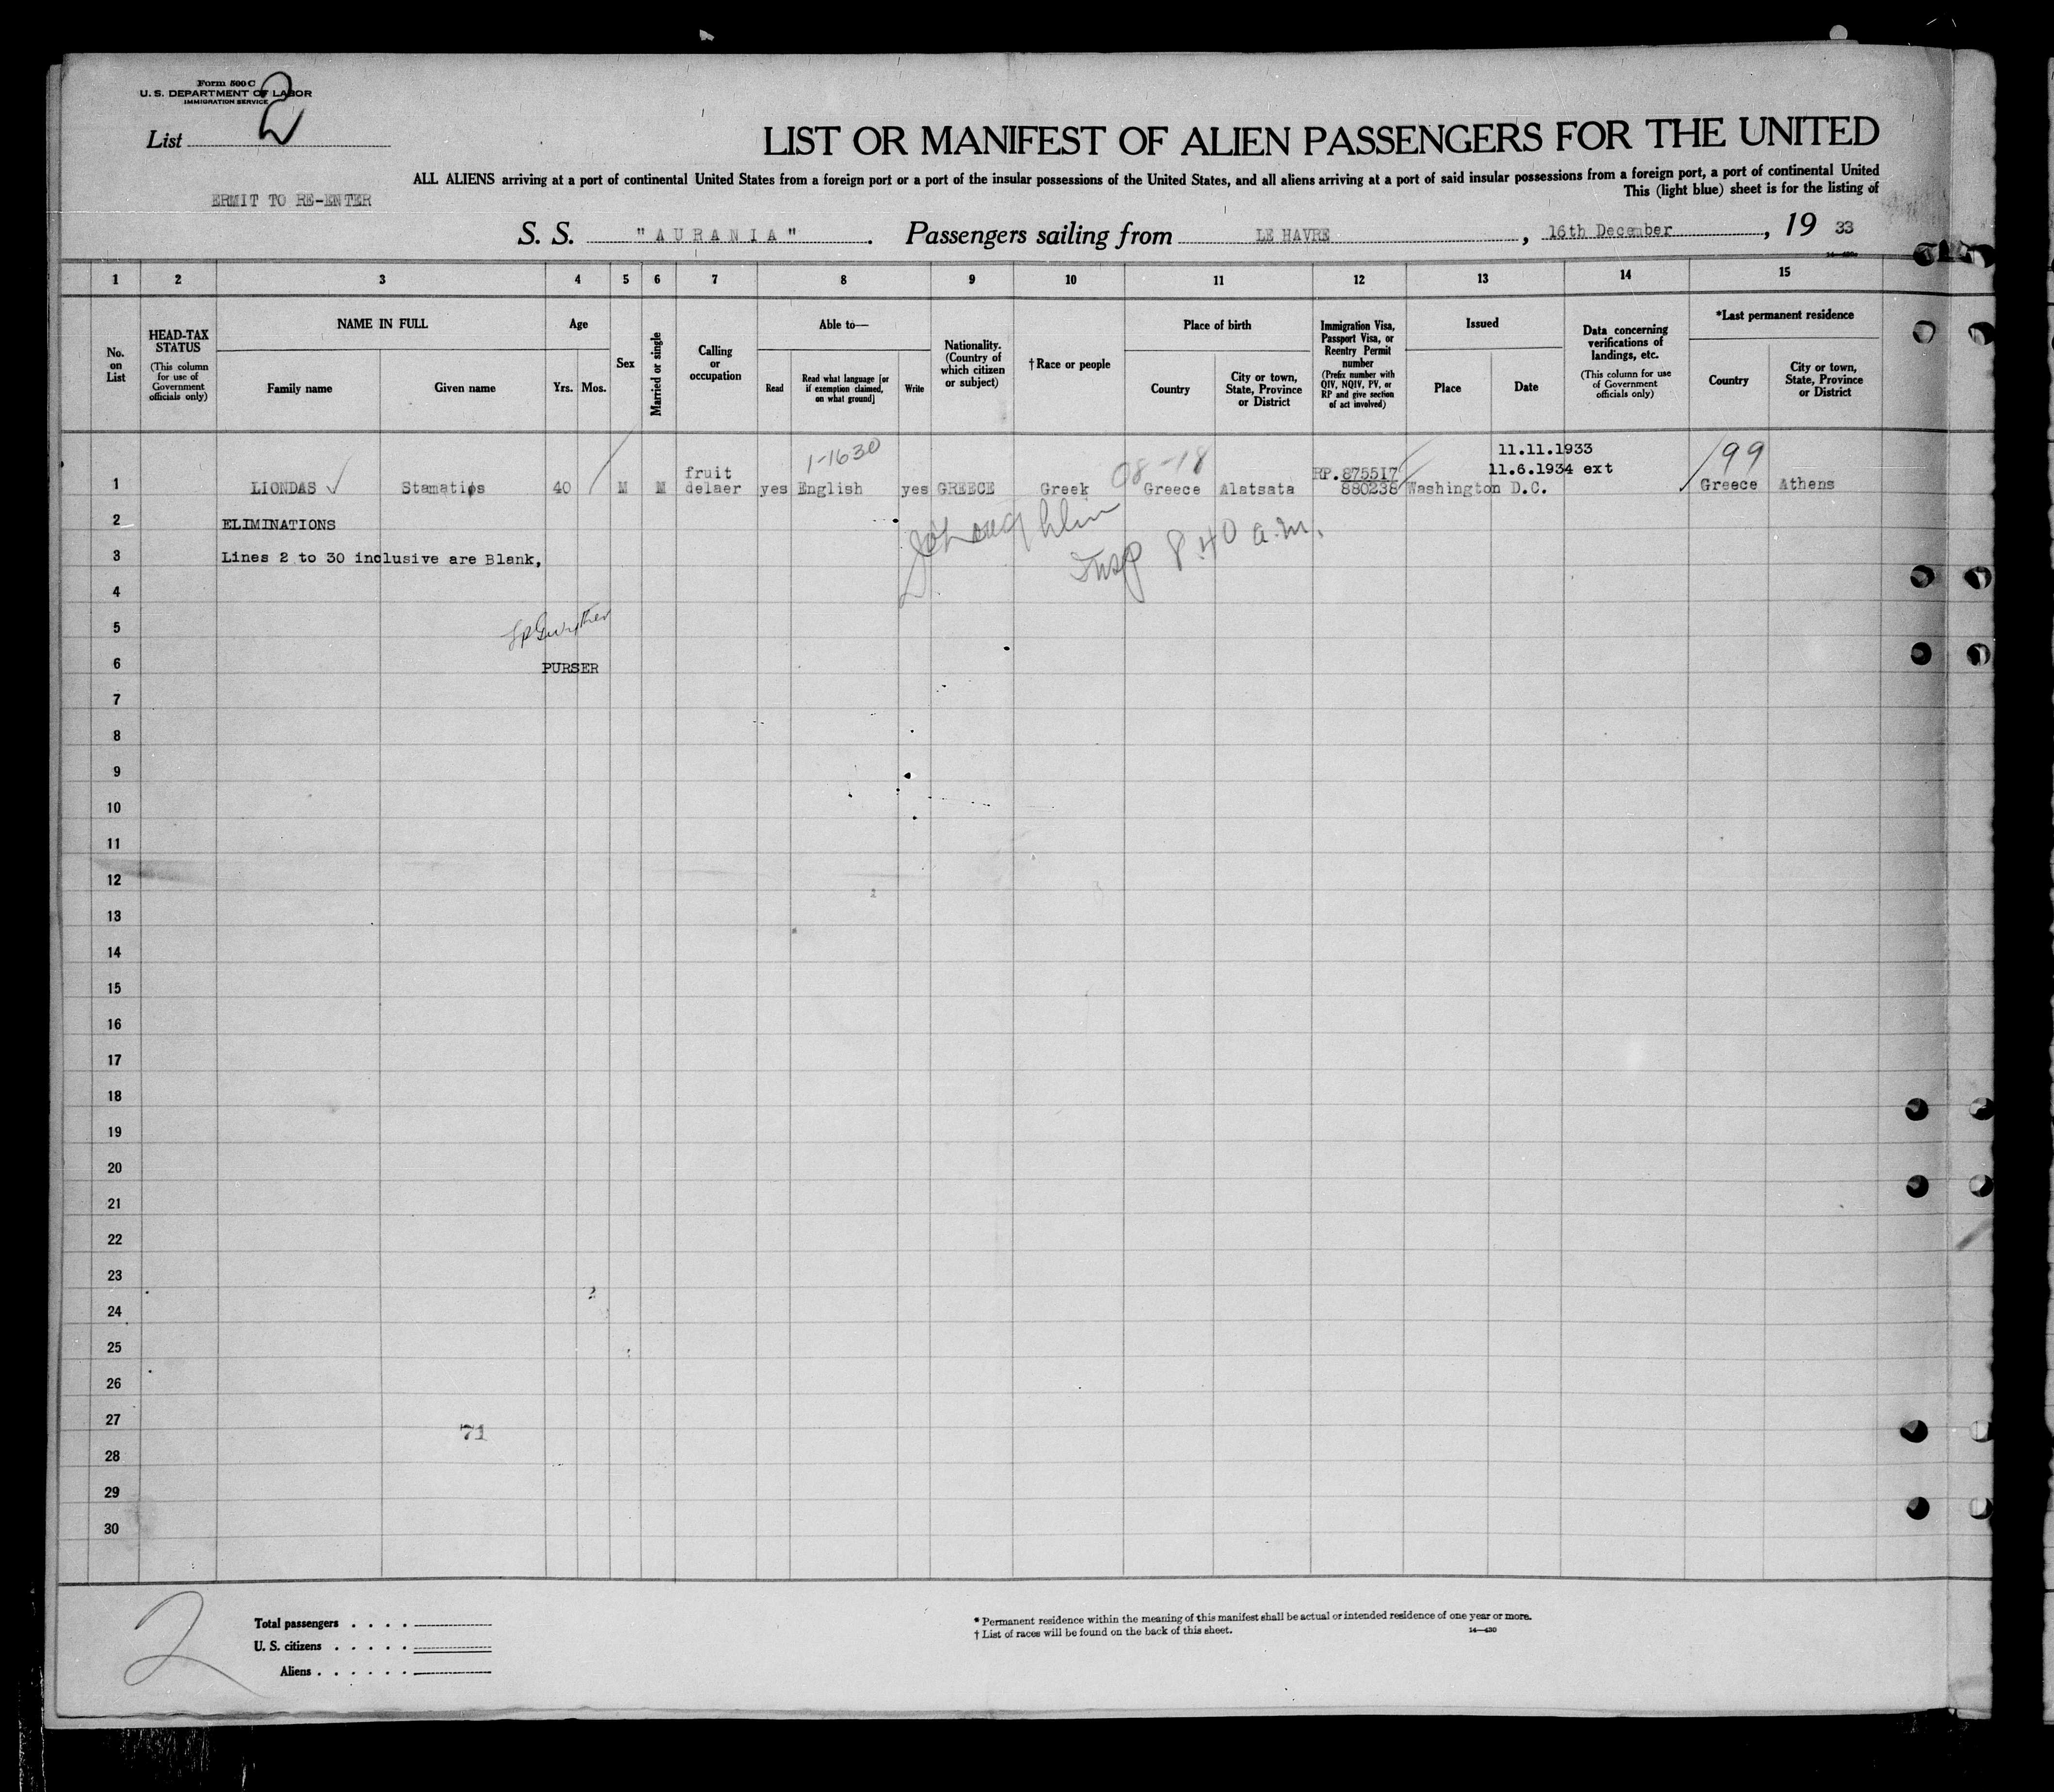 Form 500 C
U. S. DEPARTMENT OF LABOR
IMMIGRATION SERVICE
List 2
LIST OR MANIFEST OF ALIEN PASSENGERS FOR THE UNITED
ALL ALIENS arriving at a port of continental United States from a foreign port or a port of the insular possessions of the United States, and all aliens arriving at a port of said insular possessions from a foreign port, a port of continental United
This (light blue) sheet is for the listing of
ERMIT TO RE-ENTER
S. S. "AURANIA". Passengers sailing from LE HAVRE, 16th December, 19 33
1 2 3 4 5 6 7 8 9 10 11 12 13 14 15
No. on List
HEAD-TAX STATUS (This column for use of Government officials only)
NAME IN FULL
Family name
Given name
Age
Yrs. Mos.
Sex
Married or single
Calling or occupation
Able to—
Read
Read what language [or if exemption claimed, on what ground]
Write
Nationality. (Country of which citizen or subject)
†Race or people
Place of birth
Country
City or town, State, Province or District
Immigration Visa, Passport Visa, or Reentry Permit number (Prefix number with QIV, NQIV, PV, or RP and give section of act involved)
Issued
Place
Date
Data concerning verifications of landings, etc. (This column for use of Government officials only)
*Last permanent residence
Country
City or town, State, Province or District
1-1630
08-18
11.11.1933
199
fruit
RP.875517
11.6.1934 ext
1 LIONDAS Stamatios 40 M M delaer yes English yes GREECE Greek Greece Alatsata 880238 Washington D.C. Greece Athens
2 ELIMINATIONS
Insp 8:40 a.m.
3 Lines 2 to 30 inclusive are Blank,
4
5
6 PURSER
7
8
9
10
11
12
13
14
15
16
17
18
19
20
21
22
23
24
25
26
27
71
28
29
30
2
Total passengers . . . .
U. S. citizens . . . . .
Aliens . . . . . .
* Permanent residence within the meaning of this manifest shall be actual or intended residence of one year or more.
† List of races will be found on the back of this sheet.
14—430